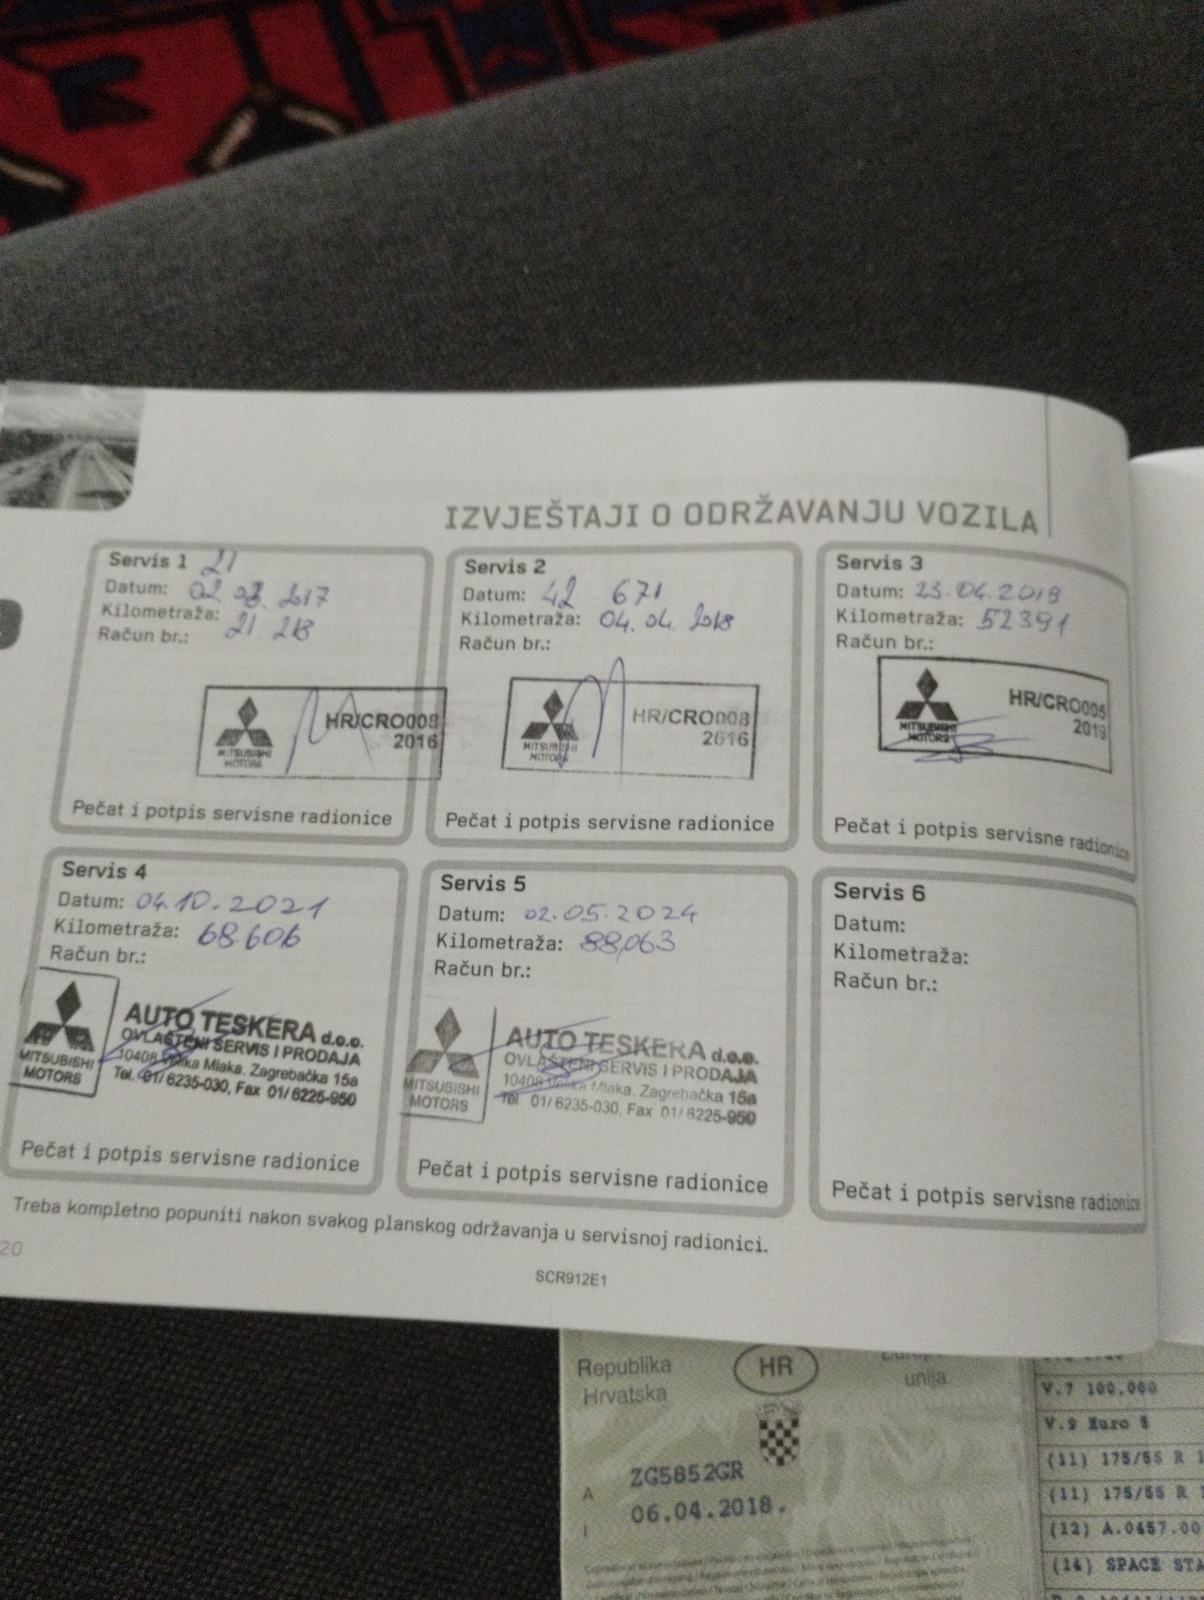 IZVJEŠTAJI O ODRŽAVANJU VOZILA
Servis 1 21
Datum: 02. 03. 2017
Kilometraža: 21 213
Račun br.:
MITSUBISHI
MOTORS
HR/CRO008
2016
Pečat i potpis servisne radionice
Servis 2
Datum: 42 671
Kilometraža: 04. 04. 2018
Račun br.:
MITSUBISHI
MOTORS
HR/CRO008
2016
Pečat i potpis servisne radionice
Servis 3
Datum: 23.04.2019
Kilometraža: 52391
Račun br.:
MITSUBISHI
MOTORS
HR/CRO005
2019
Pečat i potpis servisne radionice
Servis 4
Datum: 04.10.2021
Kilometraža: 68.606
Račun br.:
MITSUBISHI
MOTORS
AUTO TESKERA d.o.o.
OVLAŠTENI SERVIS I PRODAJA
10408 Velika Mlaka. Zagrebačka 15a
Tel. 01/ 6235-030, Fax 01/ 6225-950
Pečat i potpis servisne radionice
Servis 5
Datum: 02.05.2024
Kilometraža: 88,063
Račun br.:
MITSUBISHI
MOTORS
AUTO TESKERA d.o.o.
OVLAŠTENI SERVIS I PRODAJA
10408 Velika Mlaka. Zagrebačka 15a
Tel 01/ 6235-030, Fax 01/ 6225-950
Pečat i potpis servisne radionice
Servis 6
Datum:
Kilometraža:
Račun br.:
Pečat i potpis servisne radionice
Treba kompletno popuniti nakon svakog planskog održavanja u servisnoj radionici.
20
SCR912E1
Republika
Hrvatska
HR
unija
A ZG5852GR
I 06.04.2018.
V.7 100,000
V.9 Euro 5
(11) 175/55 R
(11) 175/55 R
(12) A.0457.00
(14) SPACE STA